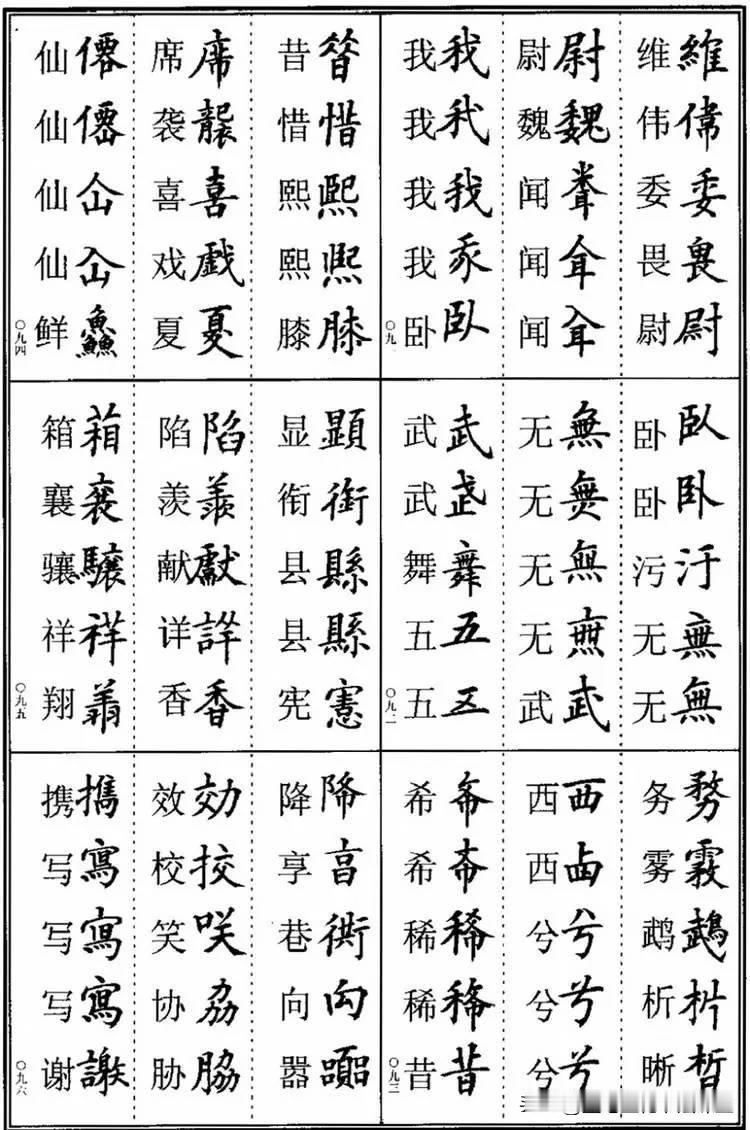 维 維
伟 偉
委 委
畏 畏
尉 尉
尉 尉
魏 魏
闻
闻
闻
我 我
我 我
我 我
我
卧 臥
〇九一
卧 臥
卧 卧
污 汙
无 無
无 無
无 無
无 無
无 無
无 無
武 武
武 武
武
舞 舞
五 五
五 五
〇九二
务 務
雾 霧
鹉 鵡
析 枿
晰 晳
西 西
西 卥
兮 兮
兮 兮
兮 兮
希
希
稀 稀
稀 稀
昔 昔
〇九三
昔
惜 惜
熙 熙
熙 熙
膝 膝
席 席
袭 襲
喜 喜
戏 戲
夏 夏
仙 僊
仙 僊
仙 仚
仙 仚
鲜 鱻
〇九四
显 顯
衔 銜
县 縣
县 縣
宪 憲
陷 陷
羡 羨
献 獻
详 詳
香 香
箱 葙
襄 襄
骧 驤
祥 祥
翔
〇九五
降 降
享 亯
巷 衖
向 向
嚣 囂
效 効
校 挍
笑 咲
协 劦
胁 脇
携 攜
写 寫
写 寫
写 寫
谢 謝
〇九六